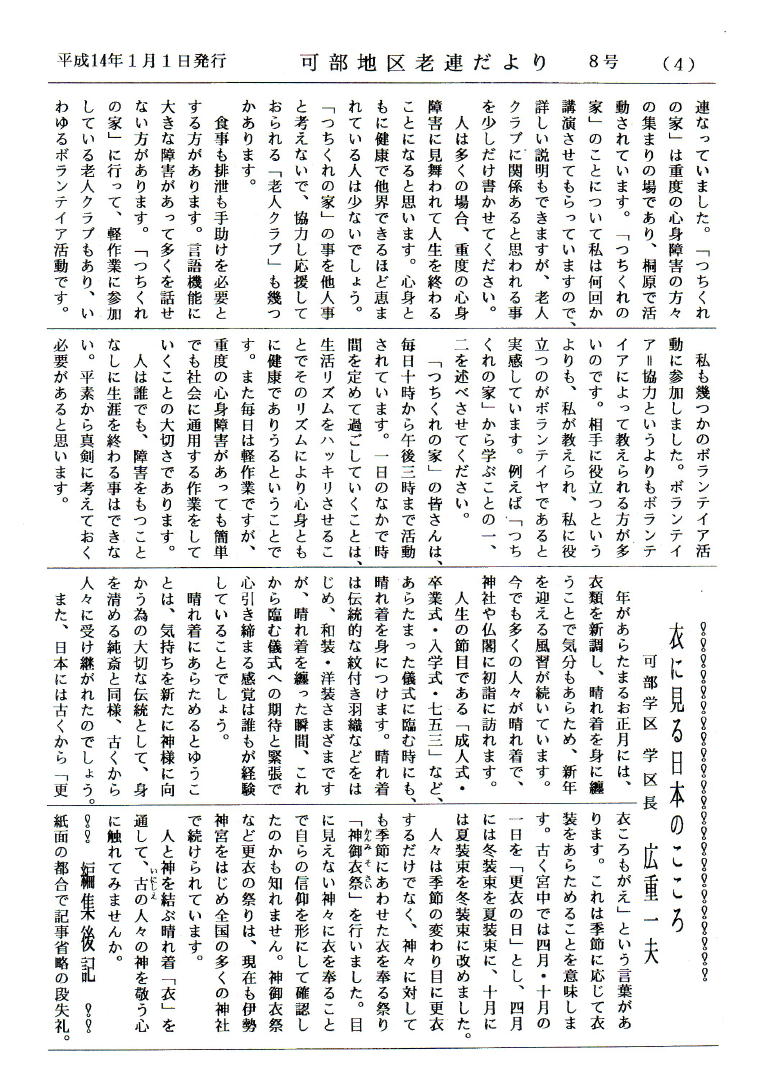 平成14年1月1日発行　可部地区老連だより　8号　(4)
連なっていました。「つちくれ
の家」は重度の心身障害の方々
の集まりの場であり、桐原で活
動されています。「つちくれの
家」のことについて私は何回か
講演させてもらっていますので、
詳しい説明もできますが、老人
クラブに関係あると思われる事
を少しだけ書かせてください。
人は多くの場合、重度の心身
障害に見舞われて人生を終わる
ことになると思います。心身と
もに健康で他界できるほど恵ま
れている人は少ないでしょう。
「つちくれの家」の事を他人事
と考えないで、協力し応援して
おられる「老人クラブ」も幾つ
かあります。
食事も排泄も手助けを必要と
する方があります。言語機能に
大きな障害があって多くを話せ
ない方があります。「つちくれ
の家」に行って、軽作業に参加
している老人クラブもあり、い
わゆるボランテイア活動です。
私も幾つかのボランテイア活
動に参加しました。ボランテイ
ア＝協力というよりもボランテ
イアによって教えられる方が多
いのです。相手に役立つという
よりも、私が教えられ、私に役
立つのがボランテイヤであると
実感しています。例えば「つち
くれの家」から学ぶことの一、
二を述べさせてください。
「つちくれの家」の皆さんは、
毎日十時から午後三時まで活動
されています。一日のなかで時
間を定めて過ごしていくことは、
生活リズムをハッキリさせるこ
とでそのリズムにより心身とも
に健康でありうるということで
す。また毎日は軽作業ですが、
重度の心身障害があっても簡単
でも社会に通用する作業をして
いくことの大切さであります。
人は誰でも、障害をもつこと
なしに生涯を終わる事はできな
い。平素から真剣に考えておく
必要があると思います。
衣に見る日本のこころ
可部学区　学区長　広重一夫
年があらたまるお正月には、
衣類を新調し、晴れ着を身に纏
うことで気分もあらため、新年
を迎える風習が続いています。
今でも多くの人々が晴れ着で、
神社や仏閣に初詣に訪れます。
人生の節目である「成人式・
卒業式・入学式・七五三」など、
あらたまった儀式に臨む時にも、
晴れ着を身につけます。晴れ着
は伝統的な紋付き羽織などをは
じめ、和装・洋装さまざまです
が、晴れ着を纏った瞬間、これ
から臨む儀式への期待と緊張で
心引き締まる感覚は誰もが経験
していることでしょう。
晴れ着にあらためるとゆうこ
とは、気持ちを新たに神様に向
かう為の大切な伝統として、身
を清める純斎と同様、古くから
人々に受け継がれたのでしょう。
また、日本には古くから「更
衣ころもがえ」という言葉があ
ります。これは季節に応じて衣
装をあらためることを意味しま
す。古く宮中では四月・十月の
一日を「更衣の日」とし、四月
には冬装束を夏装束に、十月に
は夏装束を冬装束に改めました。
人々は季節の変わり目に更衣
するだけでなく、神々に対して
も季節にあわせた衣を奉る祭り
「神御衣祭」を行いました。目
に見えない神々に衣を奉ること
で自らの信仰を形にして確認し
たのかも知れません。神御衣祭
など更衣の祭りは、現在も伊勢
神宮をはじめ全国の多くの神社
で続けられています。
人と神を結ぶ晴れ着「衣」を
通して、古の人々の神を敬う心
に触れてみませんか。
編集後記
紙面の都合で記事省略の段失礼。